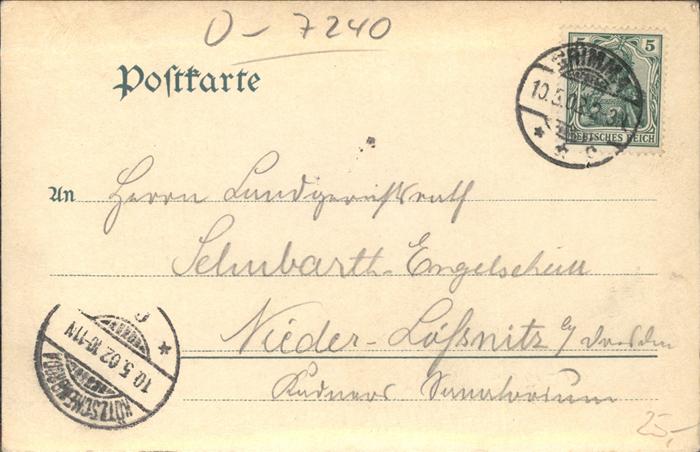 D - 7240
Postkarte
5 5
DEUTSCHES REICH
GRIMMA
10.5.02
An Herrn Landgerichtsrath
Schubarth-Engelschall
Nieder-Lößnitz b/ Dresden
Kadners Sanatorium
KÖTZSCHENBRODA
10.5.02.10-11N
25,-